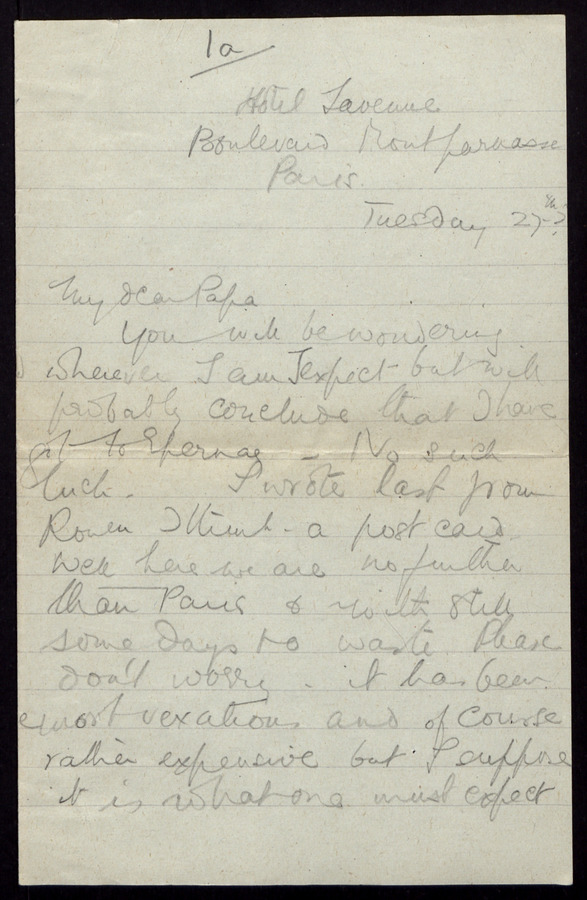 1a
Hotel Lavenue
Boulevard Montparnasse
Paris.
Tuesday 27th
My dear Papa
You will be wondering
wherever I am I expect - but will
probably conclude that I have
got to Epernay - No such
luck. I wrote last from
Rouen I think - a post card.
Well here we are no further
than Paris & with still
some days to waste. Please
don't worry - it has been
most vexatious and of course
rather expensive but I suppose
it is what one must expect